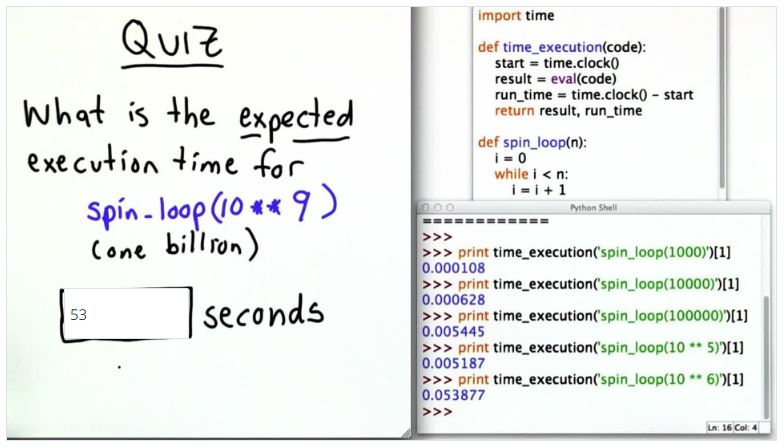 QUIZ
What is the expected
execution time for
spin_loop(10 ** 9)
(one billion)
53 seconds
import time
def time_execution(code):
start = time.clock()
result = eval(code)
run_time = time.clock() - start
return result, run_time
def spin_loop(n):
i = 0
while i < n:
i = i + 1
Python Shell
============
>>>
>>> print time_execution('spin_loop(1000)')[1]
0.000108
>>> print time_execution('spin_loop(10000)')[1]
0.000628
>>> print time_execution('spin_loop(100000)')[1]
0.005445
>>> print time_execution('spin_loop(10 ** 5)')[1]
0.005187
>>> print time_execution('spin_loop(10 ** 6)')[1]
0.053877
>>>
Ln: 16 Col: 4